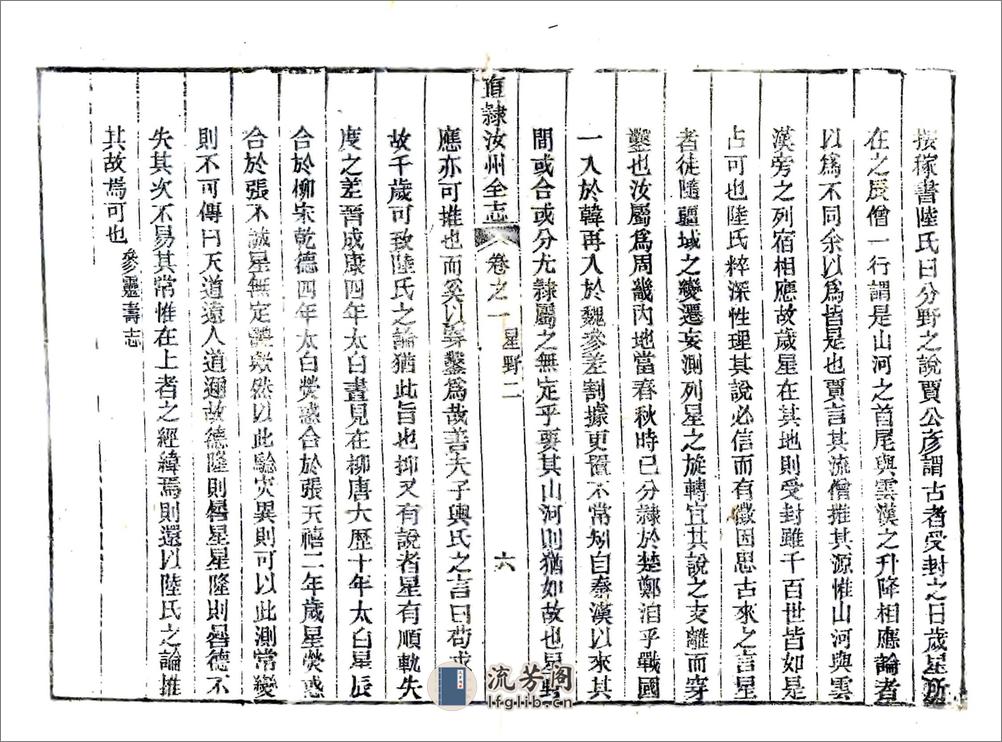 按稼書陸氏曰分野之說賈公彥謂古者受封之日歲星所
在之辰僧一行謂是山河之首尾與雲漢之升降相應論者
以爲不同余以爲皆是也賈言其流僧推其源惟山河與雲
漢旁之列宿相應故歲星在其地則受封雖千百世皆如是
占可也陸氏粹深性理其說必信而有徵因思古來之言星
者徒隨疆域之變遷妄測列星之旋轉宜其說之支離而穿
鑿也汝屬爲周畿內地當春秋時已分隸於楚鄭洎乎戰國
一入於韓再入於魏參差割據更置不常矧自秦漢以來其
間或合或分尤隸屬之無定乎要其山河則猶如故也星野
直隸汝州全志 卷之一 星野二 六
應亦可推也而奚以穿鑿爲哉善夫子輿氏之言曰苟求
故千歲可致陸氏之論猶此旨也抑又有說者星有順軌失
度之差晉咸康四年太白晝見在柳唐大歷十年太白星辰
合於柳宋乾德四年太白熒惑合於張天禧二年歲星熒惑
合於張不誠星無定體歟然以此驗灾異則可以此測常變
則不可傳曰天道遠人道邇故德隆則晷星星隆則晷德不
失其次不易其常惟在上者之經緯焉則還以陸氏之論推
其故焉可也 參靈壽志
流芳阁
lfglib.cn